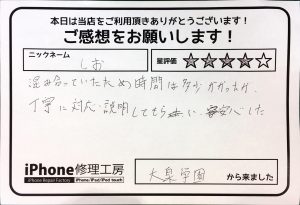 本日は当店をご利用頂きありがとうございます!
ご感想をお願いします!
ニックネーム
しお
星評価
★★★★☆
混み合っていたため時間は多少かかったが、
丁寧に対応・説明してもらい、安心した
iPhone修理工房
iPhone Repair Factory iPhone/iPad/iPod touch
大泉学園
から来ました